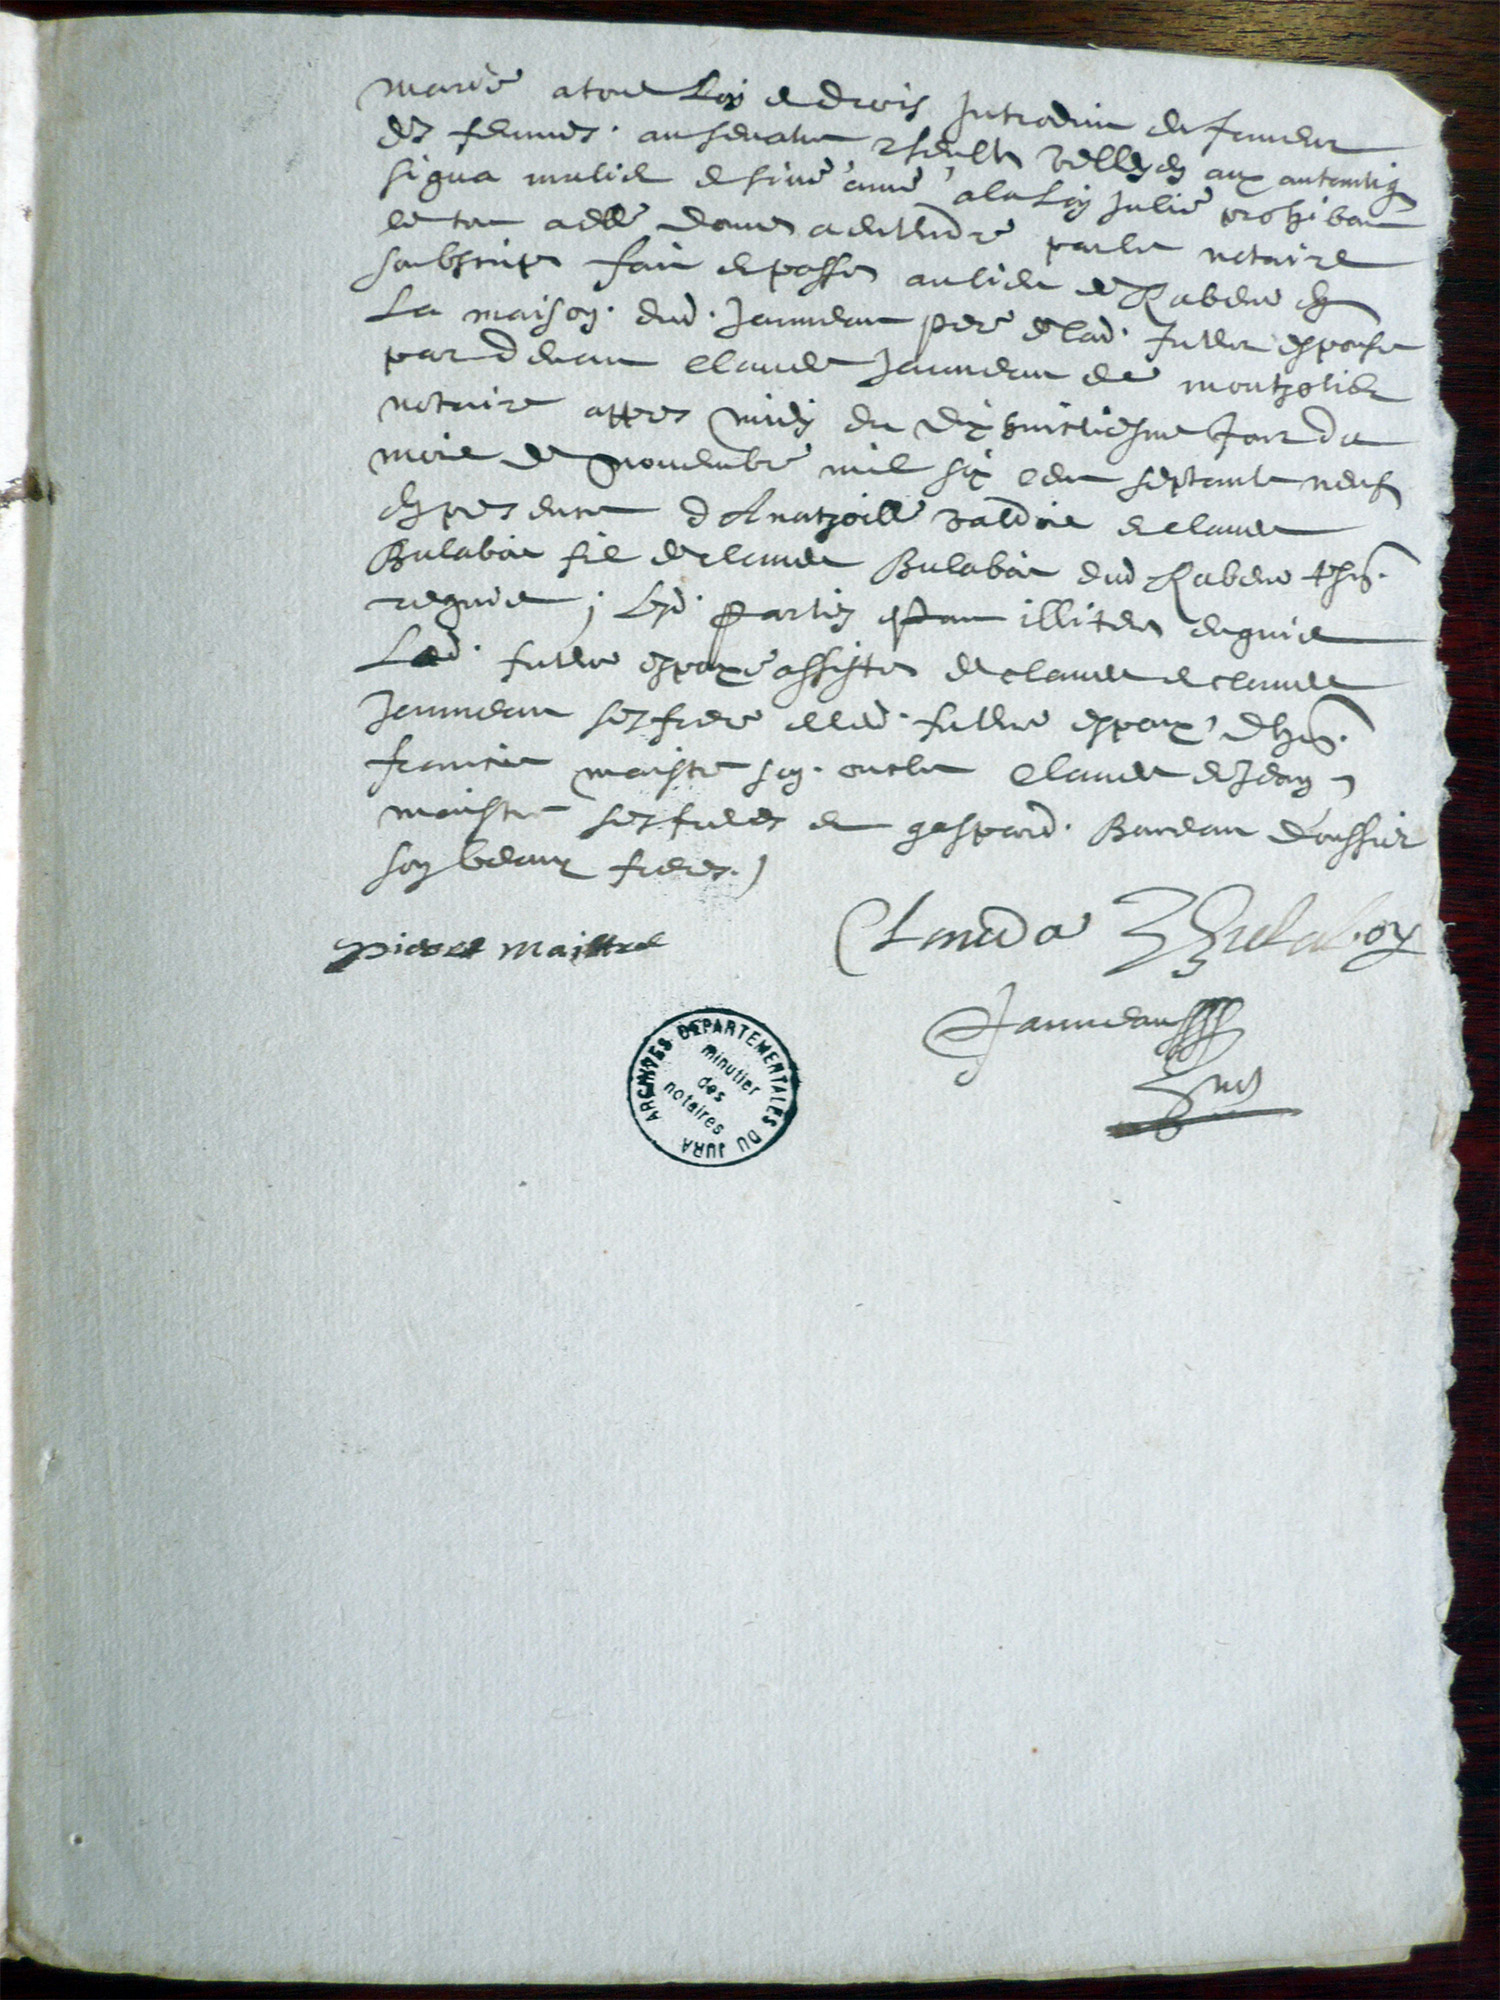 marie a tous Loy et drois Introduict en faveur
des femmes. au senatus csculte velleyen aux autentiq
si qua mulier et sive a me a la Loy Julie prohibant
le tou a elle donnes a entendre par le notaire
soubscript fait et passes au lieu de Rabeur en
La maison. dud. Janneau pere de lad. future espouse
par devant Claude Janneau de montholier
notaire appres midy du dix huictiesme Jour du
mois de novembre mil six cent septante neuf
en presence d'Anathoille valdoie et claude
Bulaboie filz de claude Bulaboie dud Rabeur tesm.
requis ; Lesd. parties estant illiteres enquise
Lad. future espouze assistes de claude et claude
Janneau ses frere et led. future espoux, d'hon.
francois maistre son. oncle Claude et Jean
maistre ses freres et gaspard. Bareau d'oussier
son beaux freres.)
pierre maittre
Claude Bulaboy
Janneau
ARCHIVES DEPARTEMENTALES DU JURA
minutier
des
notaires